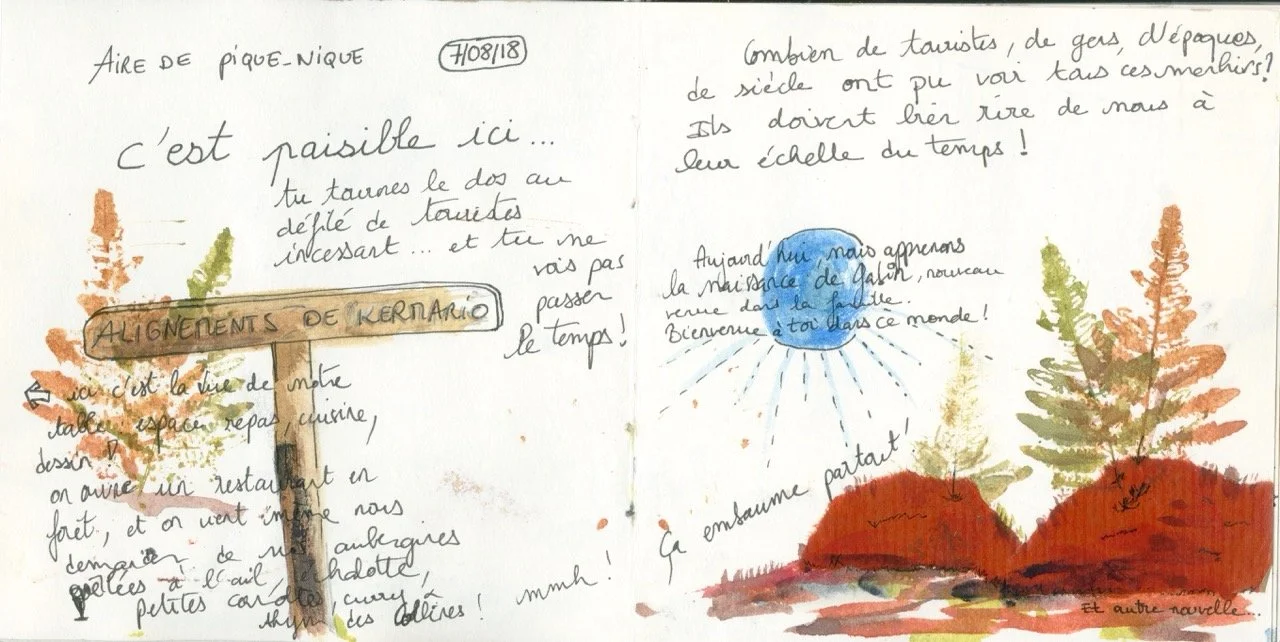 AIRE DE PIQUE-NIQUE
7/08/18
C'est paisible ici...
tu tournes le dos au
défilé de touristes
incessant... et tu ne
vois pas
passer
le temps!
ALIGNEMENTS DE KERMARIO
ici c'est la vue de notre
table espace repas, cuisine,
dessin
on ouvre un restaurant en
forêt, et on vient même nous
demander de nos aubergines
poêlées à l'ail, échalotte,
petites carottes, curry &
thym des collines! mmh!
Combien de touristes, de gens, d'époques,
de siècle ont pu voir tous ces menhirs?
Ils doivent bien rire de nous à
leur échelle du temps!
Aujourd'hui, nous apprenons
la naissance de Gabin, nouveau
venue dans la famille.
Bienvenue à toi dans ce monde!
Ça embaume partout!
Et autre nouvelle...